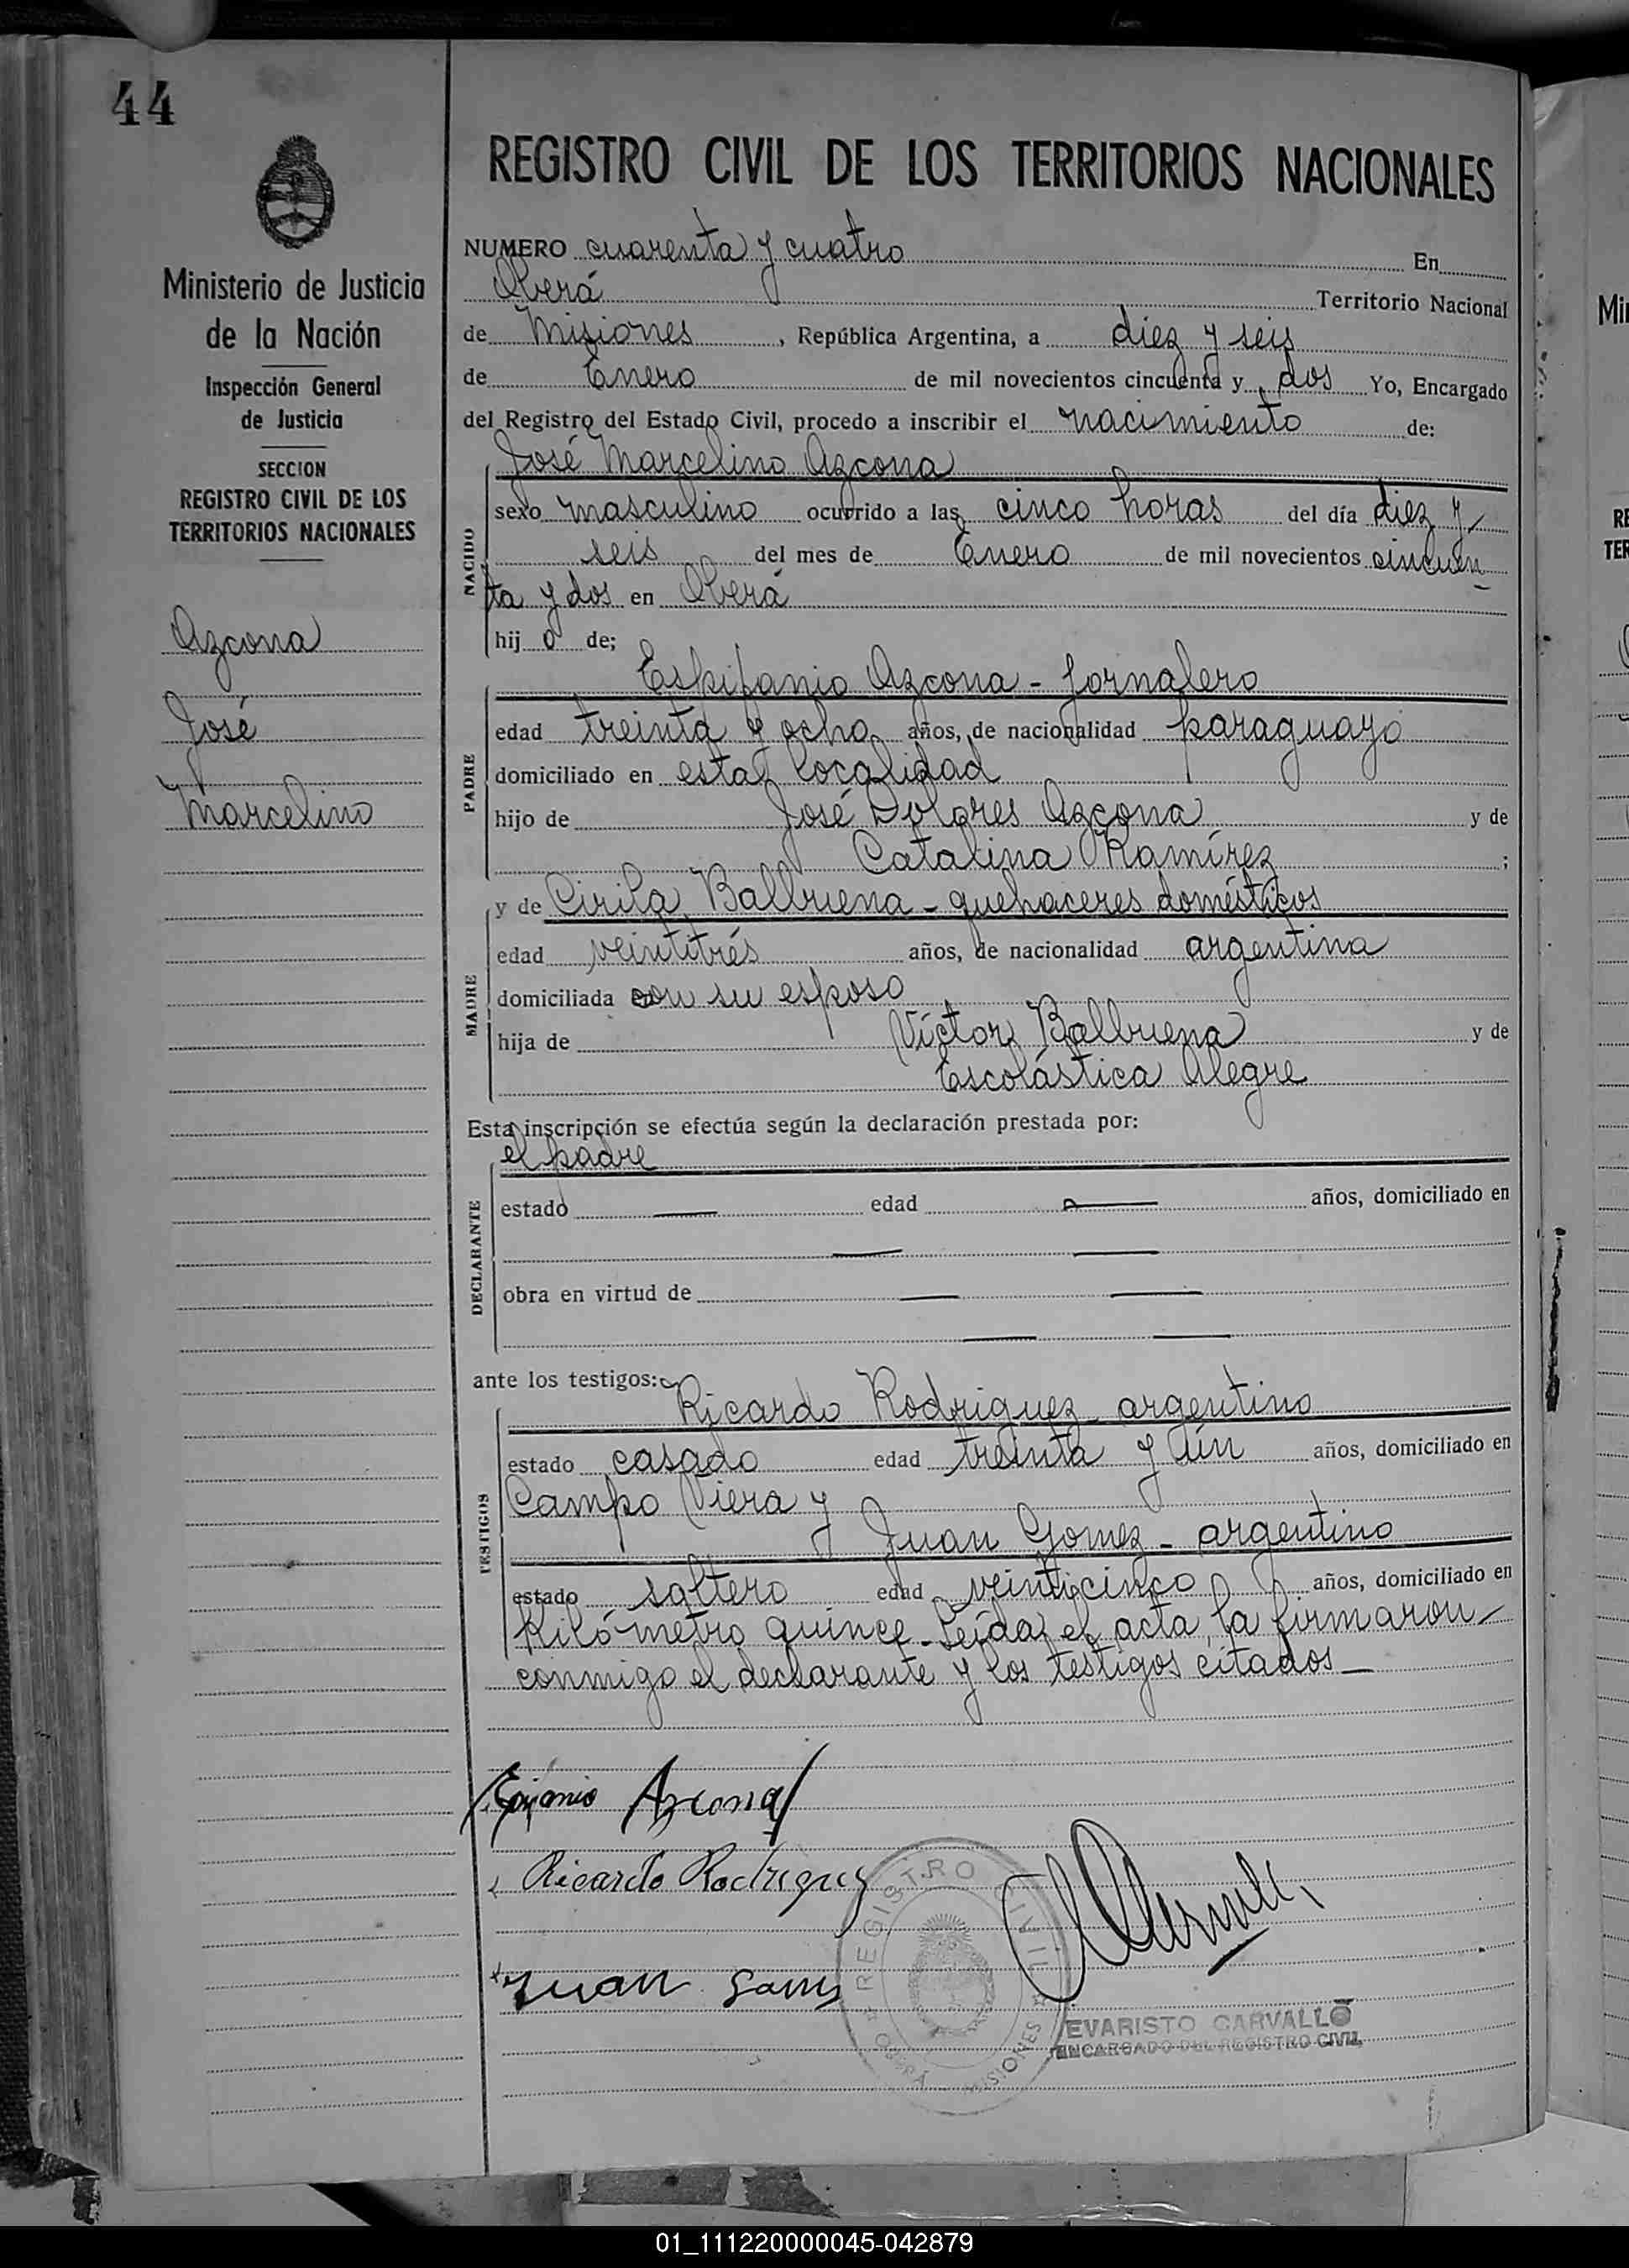 44
Ministerio de Justicia
de la Nación
Inspección General
de Justicia
SECCION
REGISTRO CIVIL DE LOS
TERRITORIOS NACIONALES
Azcona
José
Marcelino
REGISTRO CIVIL DE LOS TERRITORIOS NACIONALES
NUMERO cuarenta y cuatro En
Oberá Territorio Nacional
de Misiones, República Argentina, a diez y seis
de Enero de mil novecientos cincuenta y dos Yo, Encargado
del Registro del Estado Civil, procedo a inscribir el nacimiento de:
José Marcelino Azcona
NACIDO
sexo masculino ocurrido a las cinco horas del día diez y
seis del mes de Enero de mil novecientos cincuen
ta y dos en Oberá
hij o de;
PADRE
Espifanio Azcona - jornalero
edad treinta y ocho años, de nacionalidad paraguayo
domiciliado en esta localidad
hijo de José Dolores Azcona y de
Catalina Ramírez ;
MADRE
y de Cirila Balbuena - quehaceres domésticos
edad veintitrés años, de nacionalidad argentina
domiciliada con su esposo
hija de Víctor Balbuena y de
Escolástica Alegre
Esta inscripción se efectúa según la declaración prestada por:
el padre
DECLARANTE
estado — edad — años, domiciliado en
— —
obra en virtud de — —
— —
ante los testigos:
TESTIGOS
Ricardo Rodriguez - argentino
estado casado edad treinta y ún años, domiciliado en
Campo Viera y
Juan Gomez - argentino
estado soltero edad veinticinco años, domiciliado en
Kilómetro quince - Leída el acta, la firmaron
conmigo el declarante y los testigos citados —
Azcona
Ricardo Rodriguez
Juan
REGISTRO CIVIL
OBERÁ MISIONES
EVARISTO CARVALLO
ENCARGADO DEL REGISTRO CIVIL
Mi
RE
TER
01_111220000045-042879